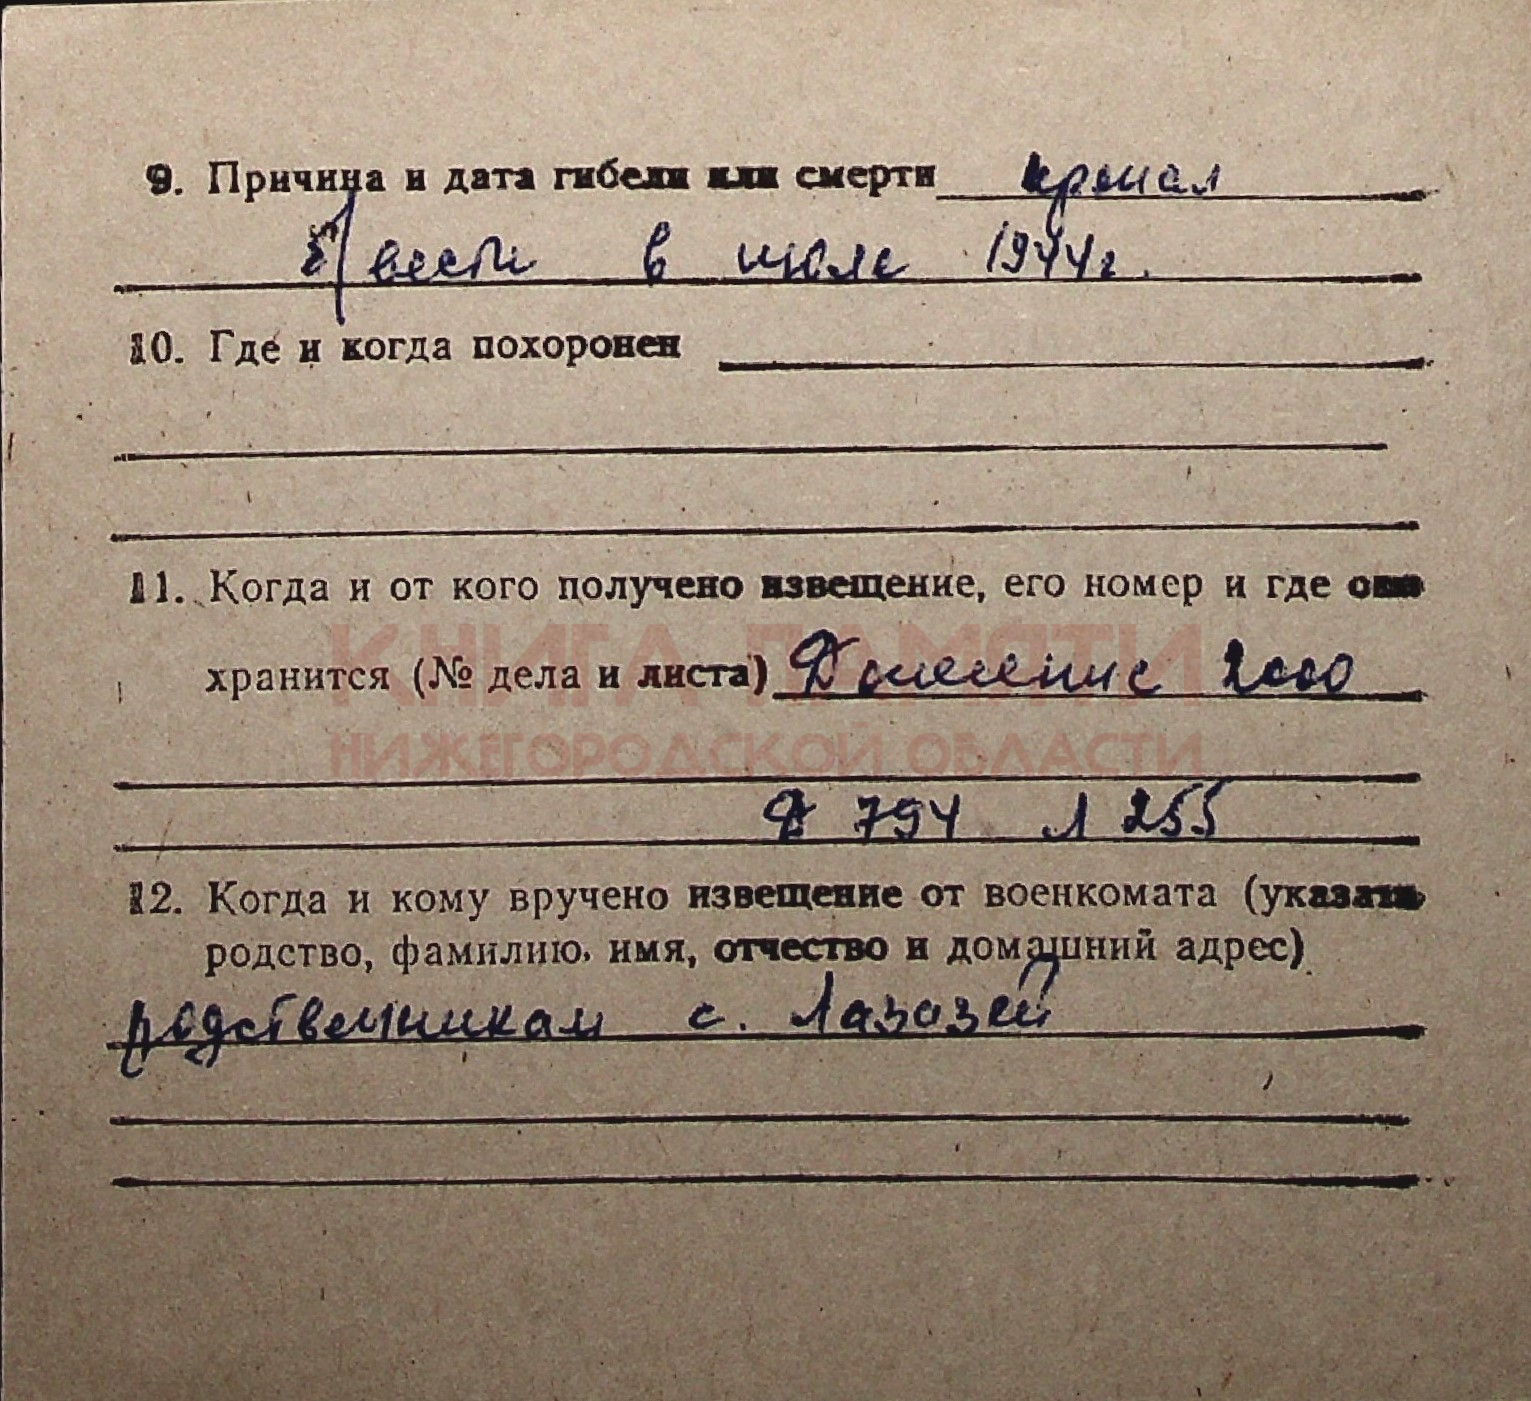 9. Причина и дата гибели или смерти пропал
б/вести в июле 1944г.
10. Где и когда похоронен
11. Когда и от кого получено извещение, его номер и где оно
КНИГА ПАМЯТИ
хранится (№ дела и листа) Донесение 2000
НИЖЕГОРОДСКОЙ ОБЛАСТИ
Д 794 Л 255
12. Когда и кому вручено извещение от военкомата (указать
родство, фамилию, имя, отчество и домашний адрес)
родственникам с. Лазазей